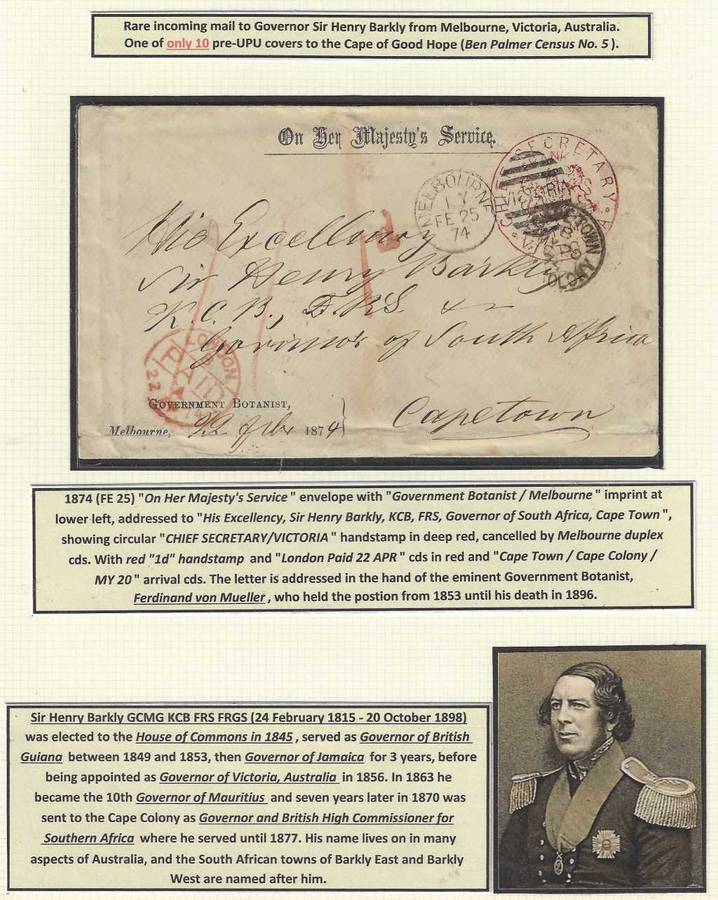 Rare incoming mail to Governor Sir Henry Barkly from Melbourne, Victoria, Australia.
One of only 10 pre-UPU covers to the Cape of Good Hope (Ben Palmer Census No. 5 ).
On Her Majesty's Service.
CHIEF SECRETARY
VICTORIA
MELBOURNE
FE 25
74
VICTORIA
His Excellency
Sir Henry Barkly
K.C.B., F.R.S. &
Governor of South Africa
Capetown
LONDON
PAID
22
GOVERNMENT BOTANIST,
Melbourne, 22 Feb 1874
1874 (FE 25) "On Her Majesty's Service " envelope with "Government Botanist / Melbourne " imprint at
lower left, addressed to "His Excellency, Sir Henry Barkly, KCB, FRS, Governor of South Africa, Cape Town ",
showing circular "CHIEF SECRETARY/VICTORIA " handstamp in deep red, cancelled by Melbourne duplex
cds. With red "1d" handstamp and "London Paid 22 APR " cds in red and "Cape Town / Cape Colony /
MY 20 " arrival cds. The letter is addressed in the hand of the eminent Government Botanist,
Ferdinand von Mueller , who held the postion from 1853 until his death in 1896.
Sir Henry Barkly GCMG KCB FRS FRGS (24 February 1815 - 20 October 1898)
was elected to the House of Commons in 1845 , served as Governor of British
Guiana between 1849 and 1853, then Governor of Jamaica for 3 years, before
being appointed as Governor of Victoria, Australia in 1856. In 1863 he
became the 10th Governor of Mauritius and seven years later in 1870 was
sent to the Cape Colony as Governor and British High Commissioner for
Southern Africa where he served until 1877. His name lives on in many
aspects of Australia, and the South African towns of Barkly East and Barkly
West are named after him.